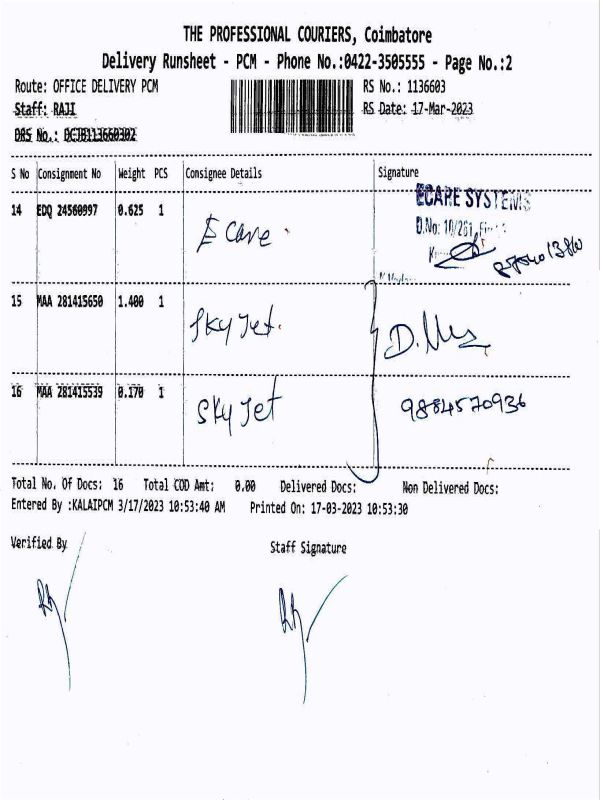 THE PROFESSIONAL COURIERS, Coimbatore
Delivery Runsheet - PCM - Phone No.:0422-3505555 - Page No.:2
Route: OFFICE DELIVERY PCM RS No.: 1136603
Staff: RAJI RS Date: 17-Mar-2023
DRS No.: DCJB113660302
S No Consignment No Weight PCS Consignee Details Signature
ECARE SYSTEMS
14 EDQ 24560997 0.625 1
D.No: 10/261,
E care
15 MAA 281415650 1.400 1
Sky Jet. D.
16 MAA 281415539 0.170 1
Sky Jet 9884570936
Total No. Of Docs: 16 Total COD Amt: 0.00 Delivered Docs: Non Delivered Docs:
Entered By :KALAIPCM 3/17/2023 10:53:40 AM Printed On: 17-03-2023 10:53:30
Verified By Staff Signature